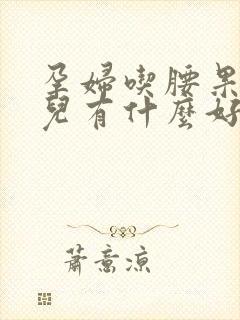 孕婦喫腰果
兒有什麼好
蕭意涼